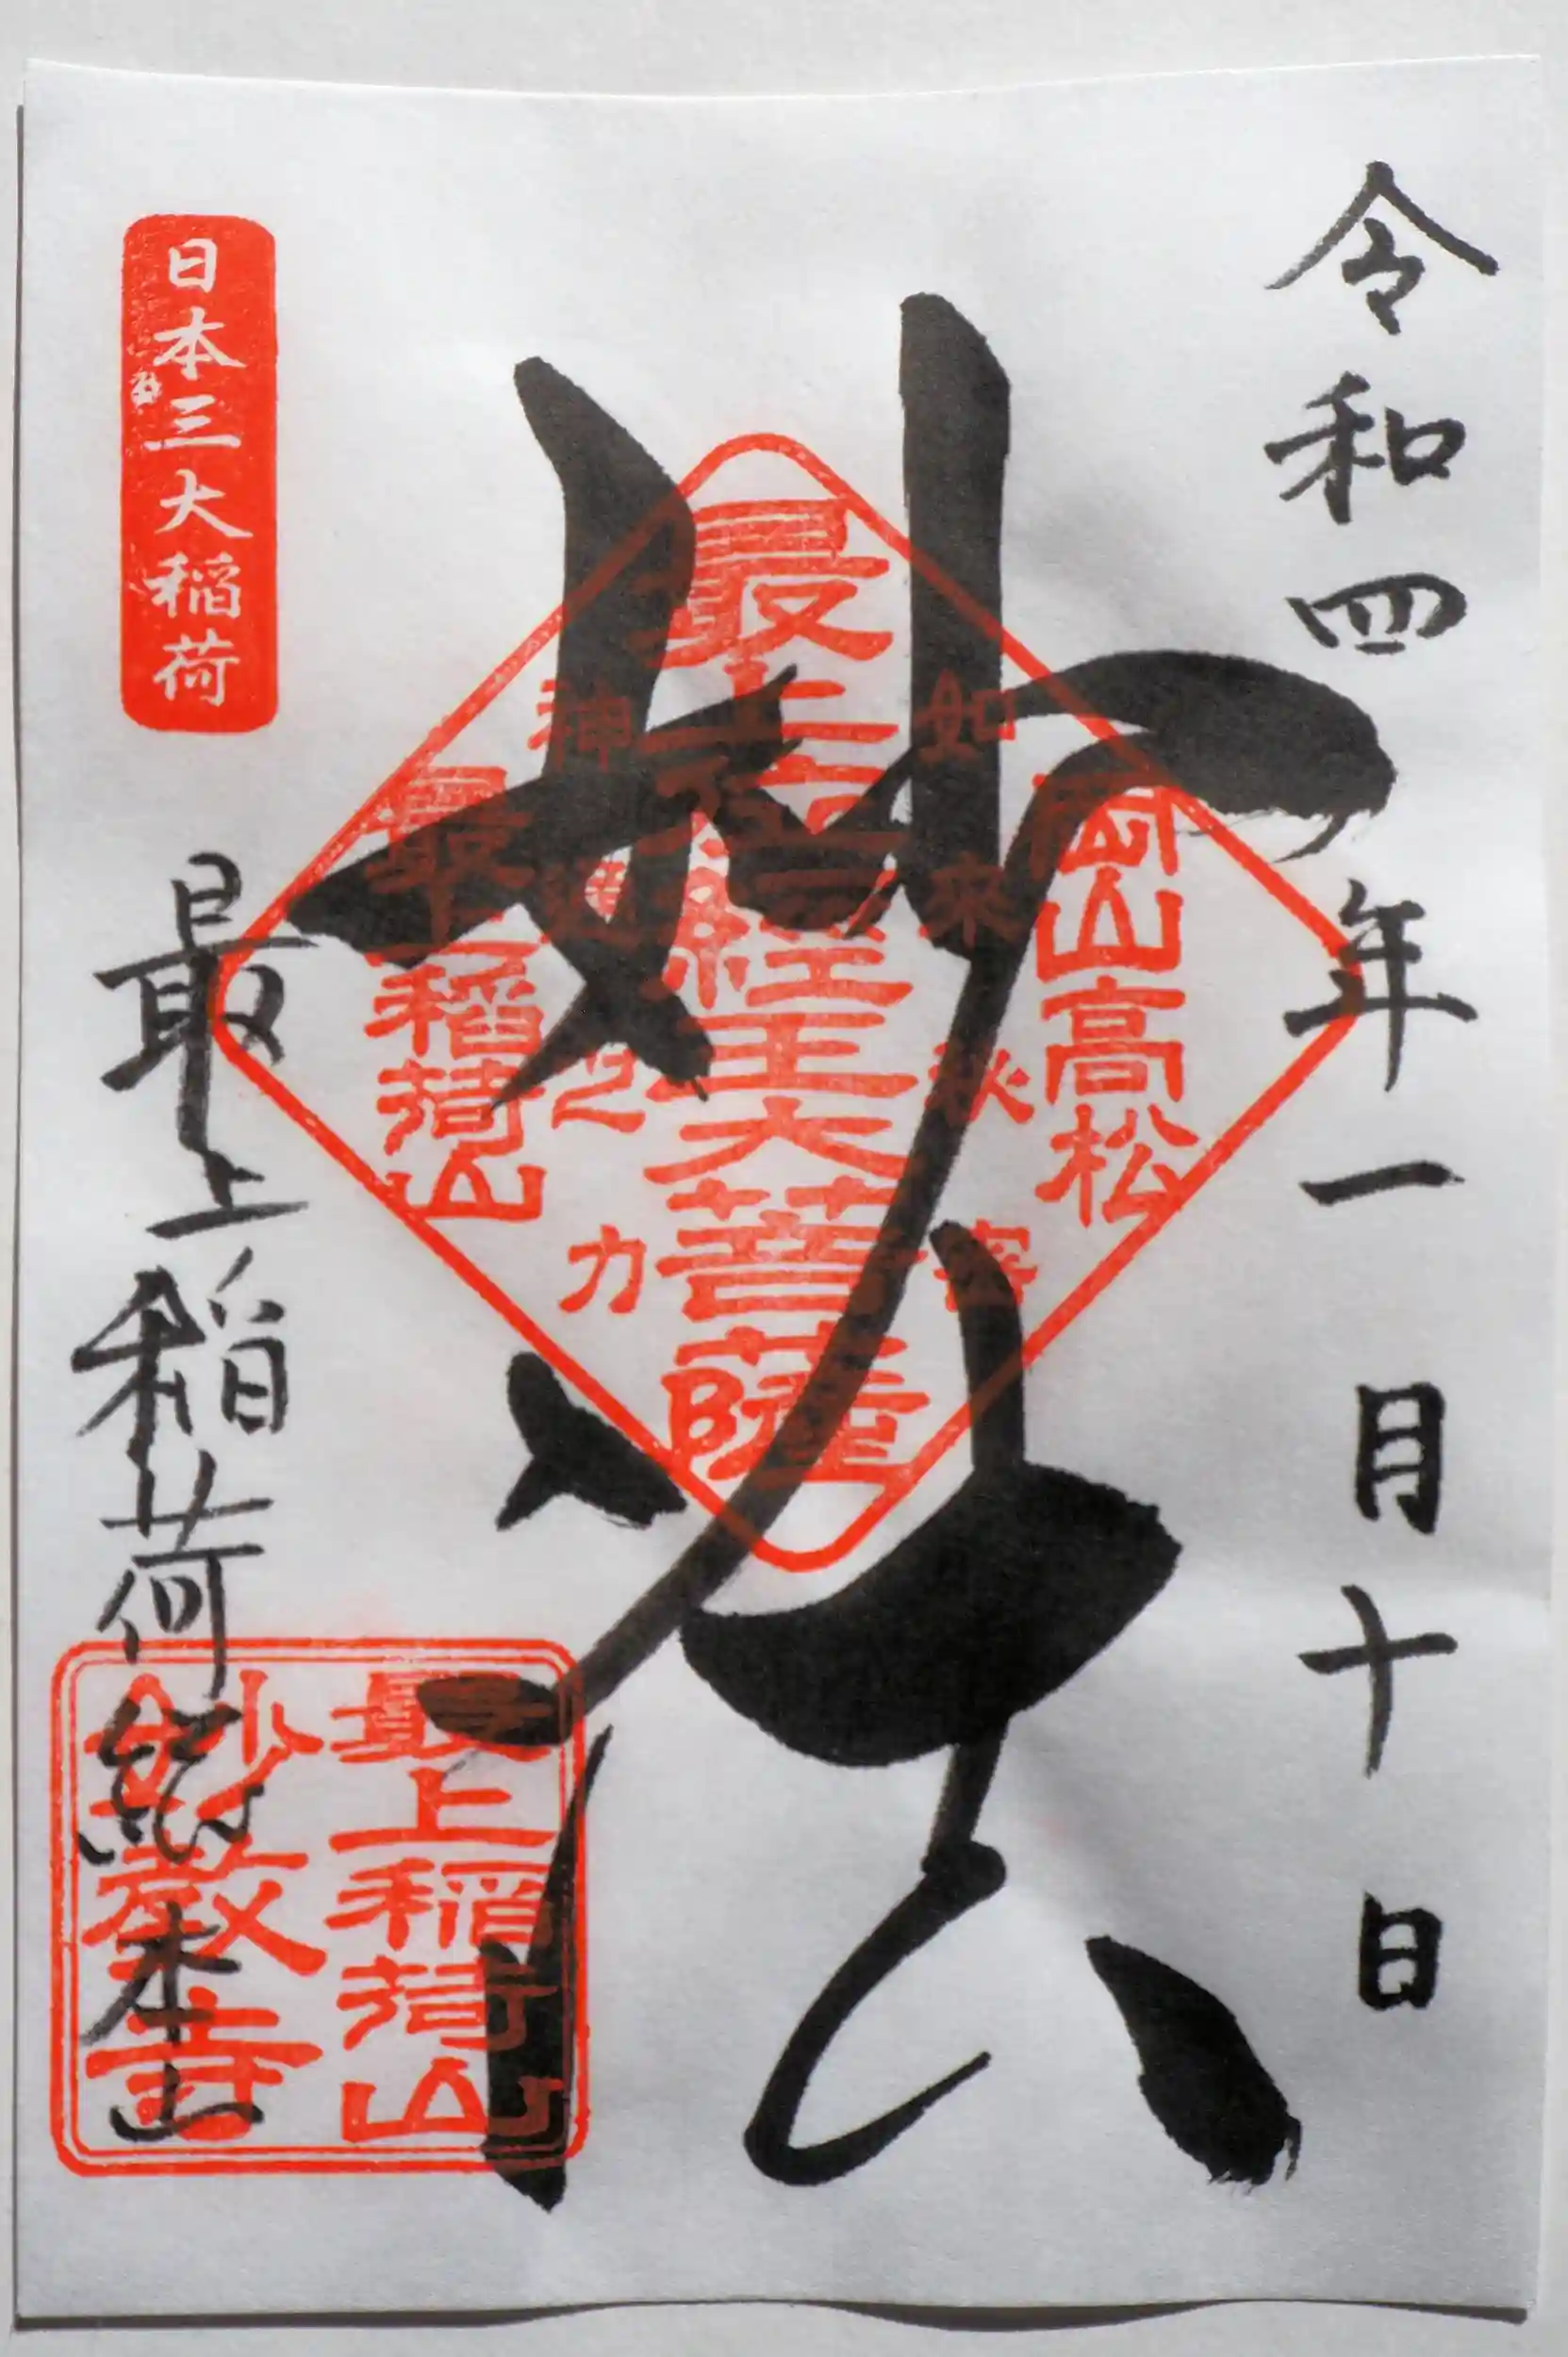 令和四年一月十日
妙法
岡山高松
如来秘密
最上位経王大菩薩
神通之力
最上稲荷山
日本三大稲荷
最上稲荷総本山
最上稲荷山
妙教寺